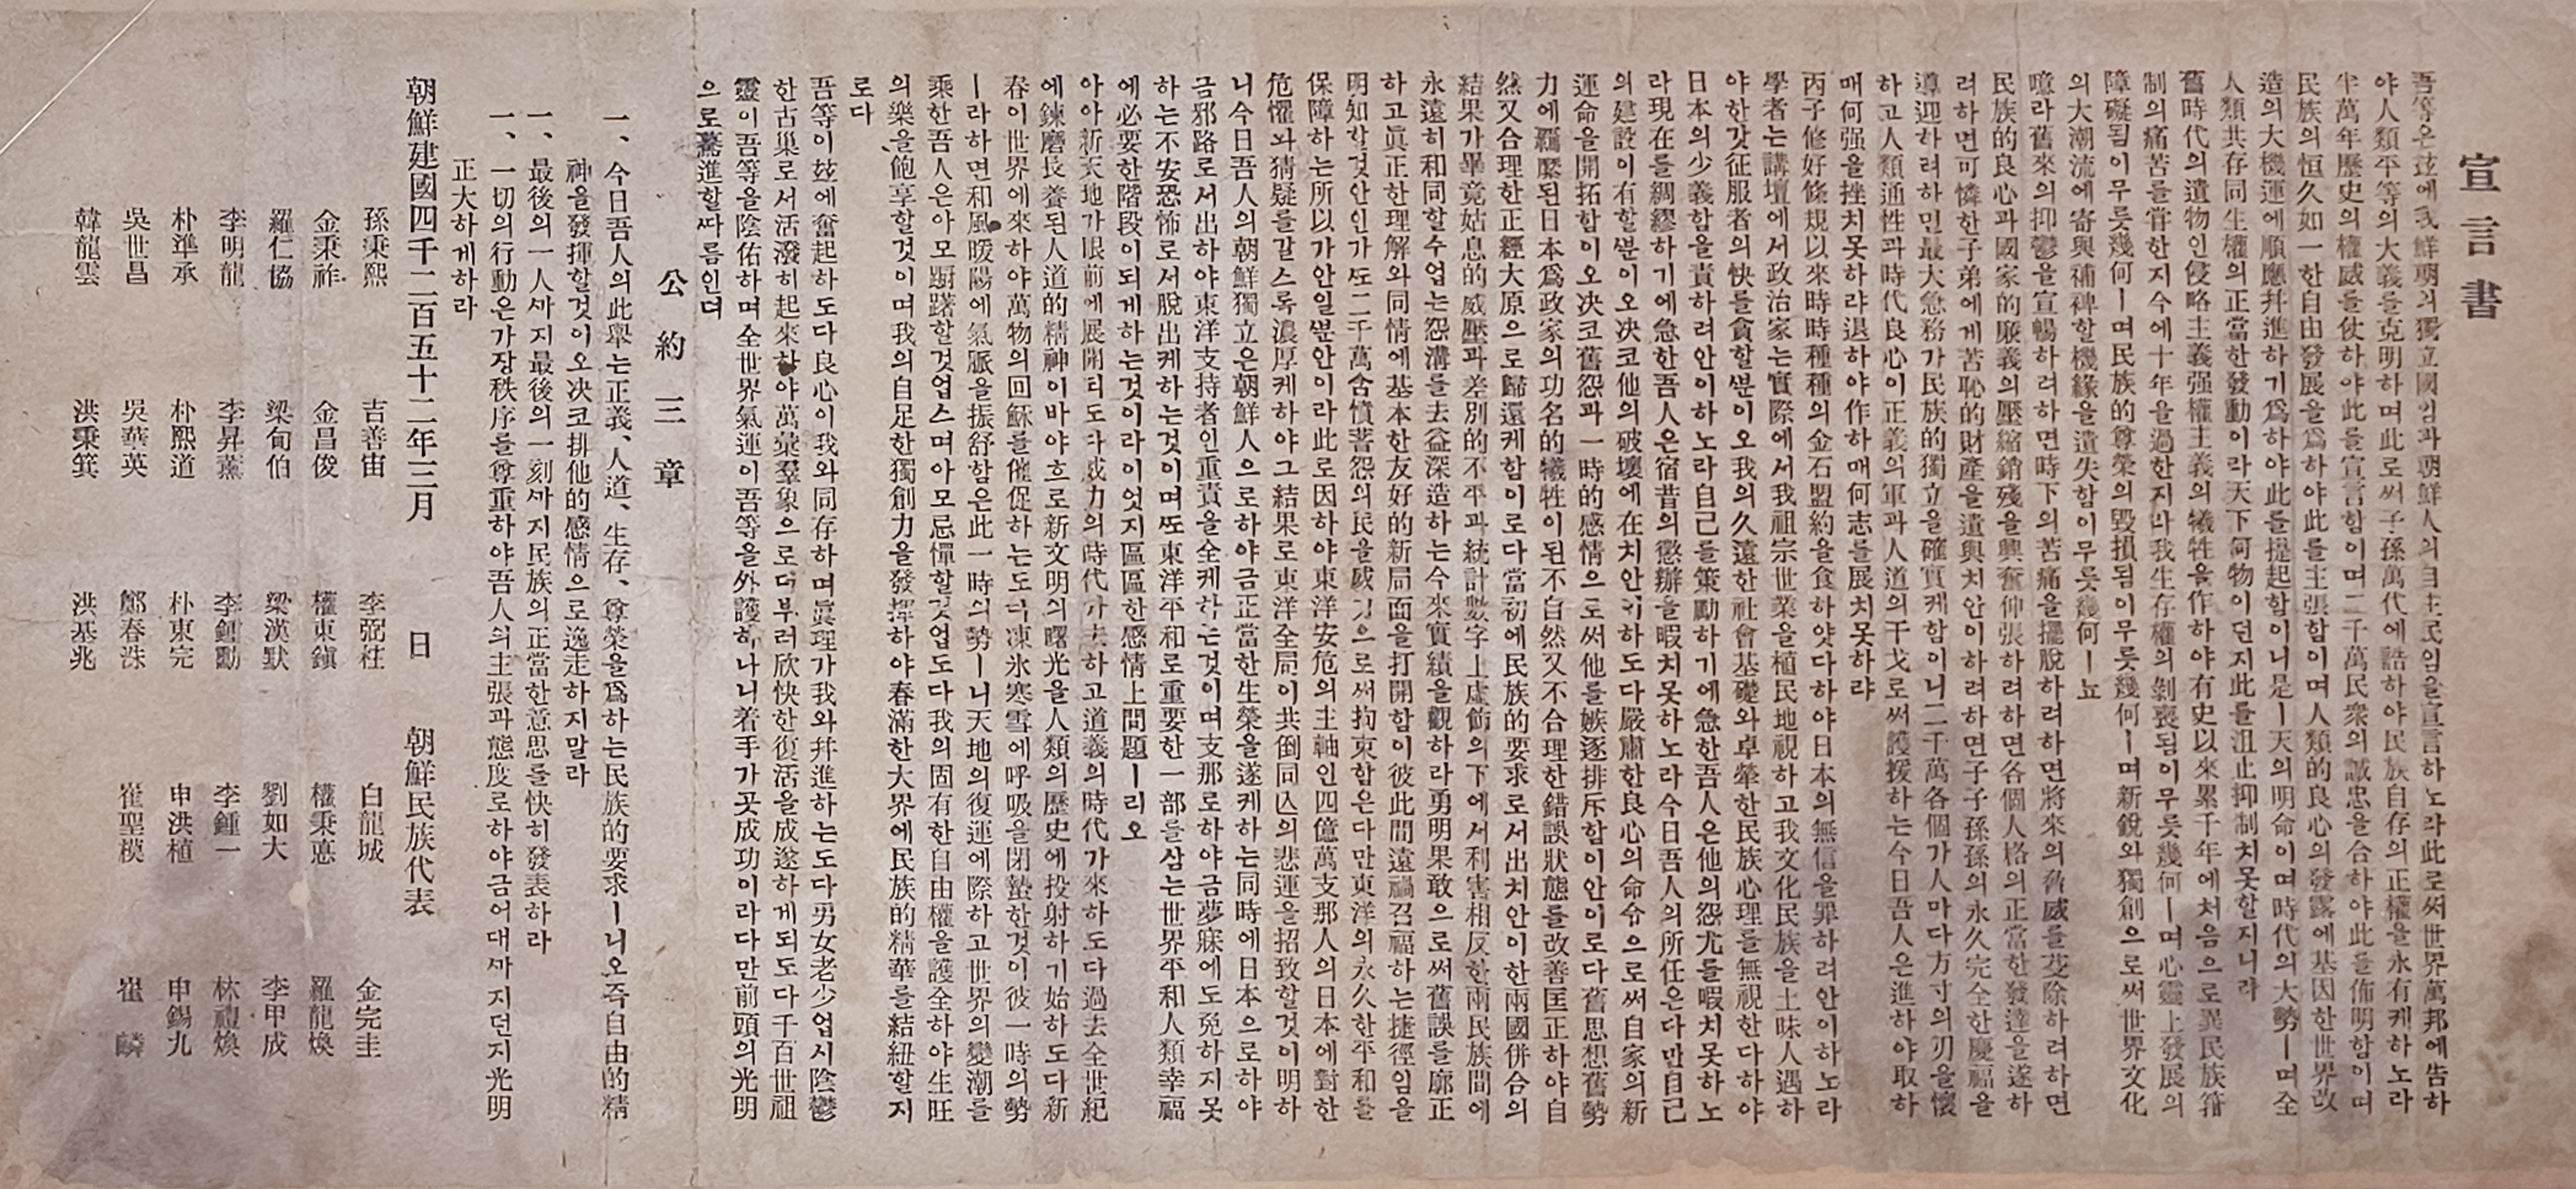 宣言書
吾等은玆에我鮮朝의獨立國임과朝鮮人의自主民임을宣言하노라此로써世界萬邦에告하
야人類平等의大義를克明하며此로써子孫萬代에誥하야民族自存의正權을永有케하노라
半萬年歷史의權威를仗하야此를宣言함이며二千萬民衆의誠忠을合하야此를佈明함이며
民族의恒久如一한自由發展을爲하야此를主張함이며人類的良心의發露에基因한世界改
造의大機運에順應幷進하기爲하야此를提起함이니是ㅣ天의明命이며時代의大勢ㅣ며全
人類共存同生權의正當한發動이라天下何物이던지此를沮止抑制치못할지니라
舊時代의遺物인侵略主義强權主義의犧牲을作하야有史以來累千年에처음으로異民族箝
制의痛苦를嘗한지今에十年을過한지라我生存權의剝喪됨이무릇幾何ㅣ며心靈上發展의
障礙됨이무릇幾何ㅣ며民族的尊榮의毁損됨이무릇幾何ㅣ며新銳와獨創으로써世界文化
의大潮流에寄與補裨할機緣을遺失함이무릇幾何ㅣ뇨
噫라舊來의抑鬱을宣暢하려하면時下의苦痛을擺脫하려하면將來의脅威를芟除하려하면
民族的良心과國家的廉義의壓縮銷殘을興奮伸張하려하면各個人格의正當한發達을遂하
려하면可憐한子弟에게苦恥的財產을遺與치안이하려하면子子孫孫의永久完全한慶福을
導迎하려하면最大急務가民族的獨立을確實케함이니二千萬各個가人마다方寸의刃을懷
하고人類通性과時代良心이正義의軍과人道의干戈로써護援하는今日吾人은進하야取하
매何强을挫치못하랴退하야作하매何志를展치못하랴
丙子修好條規以來時時種種의金石盟約을食하얏다하야日本의無信을罪하려안이하노라
學者는講壇에서政治家는實際에서我祖宗世業을植民地視하고我文化民族을土昧人遇하
야한갓征服者의快를貪할ᄲᅮᆫ이오我의久遠한社會基礎와卓犖한民族心理를無視한다하야
日本의少義함을責하려안이하노라自己를策勵하기에急한吾人은他의怨尤를暇치못하노
라現在를綢繆하기에急한吾人은宿昔의懲辦을暇치못하노라今日吾人의所任은다만自己
의建設이有할ᄲᅮᆫ이오決코他의破壞에在치안이하도다嚴肅한良心의命令으로써自家의新
運命을開拓함이오決코舊怨과一時的感情으로써他를嫉逐排斥함이안이로다舊思想舊勢
力에羈縻된日本爲政家의功名的犧牲이된不自然又不合理한錯誤狀態를改善匡正하야自
然又合理한正經大原으로歸還케함이로다當初에民族的要求로서出치안이한兩國併合의
結果가畢竟姑息的威壓과差別的不平과統計數字上虛飾의下에서利害相反한兩民族間에
永遠히和同할수업는怨溝를去益深造하는今來實績을觀하라勇明果敢으로써舊誤를廓正
하고眞正한理解와同情에基本한友好的新局面을打開함이彼此間遠禍召福하는捷徑임을
明知할것안인가ᄯᅩ二千萬含憤蓄怨의民을威力으로써拘束함은다만東洋의永久한平和를
保障하는所以가안일ᄲᅮᆫ안이라此로因하야東洋安危의主軸인四億萬支那人의日本에對한
危懼와猜疑를갈스록濃厚케하야그結果로東洋全局이共倒同亡의悲運을招致할것이明하
니今日吾人의朝鮮獨立은朝鮮人으로하야금正當한生榮을遂케하는同時에日本으로하야
금邪路로서出하야東洋支持者인重責을全케하는것이며支那로하야금夢寐에도免하지못
하는不安恐怖로서脫出케하는것이며ᄯᅩ東洋平和로重要한一部를삼는世界平和人類幸福
에必要한階段이되게하는것이라이엇지區區한感情上問題ㅣ리오
아아新天地가眼前에展開되도다威力의時代가去하고道義의時代가來하도다過去全世紀
에鍊磨長養된人道的精神이바야흐로新文明의曙光을人類의歷史에投射하기始하도다新
春이世界에來하야萬物의回穌를催促하는도다凍氷寒雪에呼吸을閉蟄한것이彼一時의勢
ㅣ라하면和風暖陽에氣脈을振舒함은此一時의勢ㅣ니天地의復運에際하고世界의變潮를
乘한吾人은아모躕躇할것업스며아모忌憚할것업도다我의固有한自由權을護全하야生旺
의樂을飽享할것이며我의自足한獨創力을發揮하야春滿한大界에民族的精華를結紐할지
로다
吾等이玆에奮起하도다良心이我와同存하며眞理가我와幷進하는도다男女老少업시陰鬱
한古巢로서活潑히起來하야萬彙羣象으로더부러欣快한復活을成遂하게되도다千百世祖
靈이吾等을陰佑하며全世界氣運이吾等을外護하나니着手가곳成功이라다만前頭의光明
으로驀進할ᄯᅡ름인뎌
公約三章
一、今日吾人의此擧는正義、人道、生存、尊榮을爲하는民族的要求ㅣ니오즉自由的精
神을發揮할것이오決코排他的感情으로逸走하지말라
一、最後의一人ᄭᅡ지最後의一刻ᄭᅡ지民族의正當한意思를快히發表하라
一、一切의行動은가장秩序를尊重하야吾人의主張과態度로하야금어대ᄭᅡ지던지光明
正大하게하라
朝鮮建國四千二百五十二年三月 日 朝鮮民族代表
孫秉熙 吉善宙 李弼柱 白龍城 金完圭
金秉祚 金昌俊 權東鎭 權秉悳 羅龍煥
羅仁協 梁甸伯 梁漢默 劉如大 李甲成
李明龍 李昇薰 李鍾勳 李鍾一 林禮煥
朴準承 朴熙道 朴東完 申洪植 申錫九
吳世昌 吳華英 鄭春洙 崔聖模 崔麟
韓龍雲 洪秉箕 洪基兆